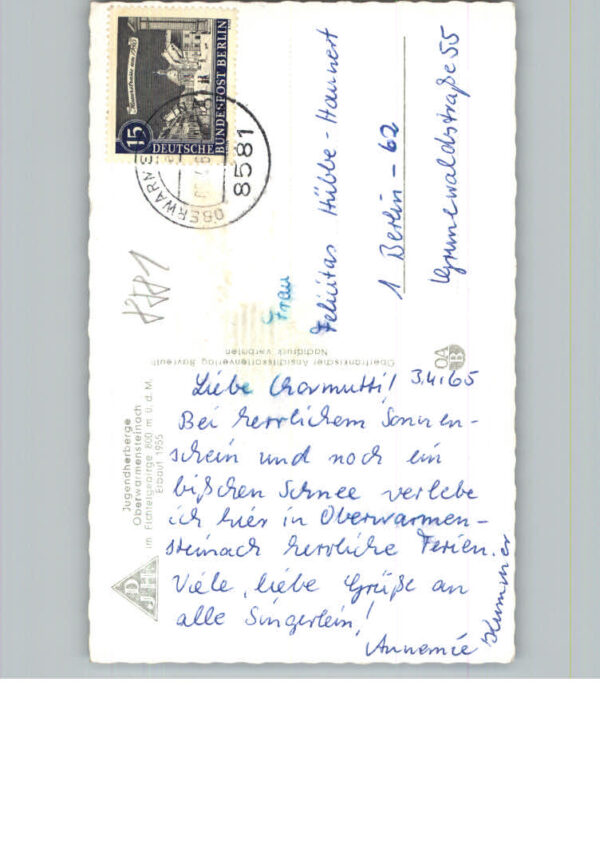 Liebe Chormutti! 3.4.65
Bei herrlichem Sonnen-
schein und noch ein
bißchen Schnee verlebe
ich hier in Oberwarmen-
steinach herrliche Ferien.
Viele, liebe Grüße an
alle Singerlein!
Annemie Kummer
Frau
Felicitas Hübbe-Haunert
1 Berlin-62
Grunewaldstraße 55
15
DEUTSCHE
BUNDESPOST BERLIN
8581
8581
Jugendherberge
Oberwarmensteinach
im Fichtelgebirge 800 m ü. d. M.
Erbaut 1955
DJH
Oberfränkischer Ansichtskartenverlag Bayreuth
Nachdruck verboten
OA
B